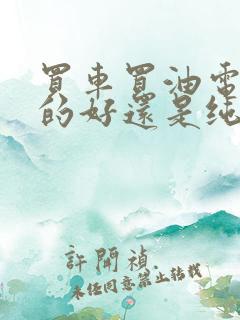 買車買油電
的好還是純
許開禎
未經同意禁止轉載